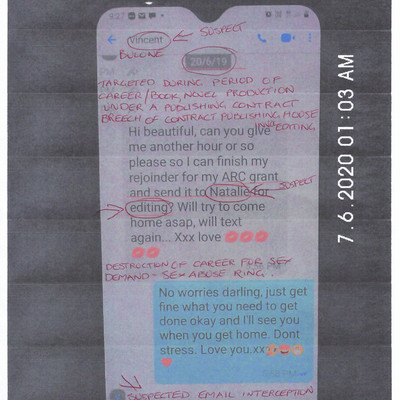 9:27
Vincent
SUSPECT
BULLINE
20/6/19
TARGETED DURING PERIOD OF
CAREER/BOOK, NOVEL PRODUCTION
UNDER A PUBLISHING CONTRACT
BREECH OF CONTRACT PUBLISHING HOUSE
EDITING
Hi beautiful, can you give
me another hour or so
please so I can finish my
rejoinder for my ARC grant
and send it to Natalie for
SUSPECT
editing? Will try to come
home asap, will text
again... Xxx love
DESTRUCTION OF CAREER FOR SEX
DEMAND - SEX ABUSE RING.
No worries darling, just get
fine what you need to get
done okay and I'll see you
when you get home. Dont
stress. Love you.xx
SUSPECTED EMAIL INTERCEPTION
7.6.2020 01:03 AM